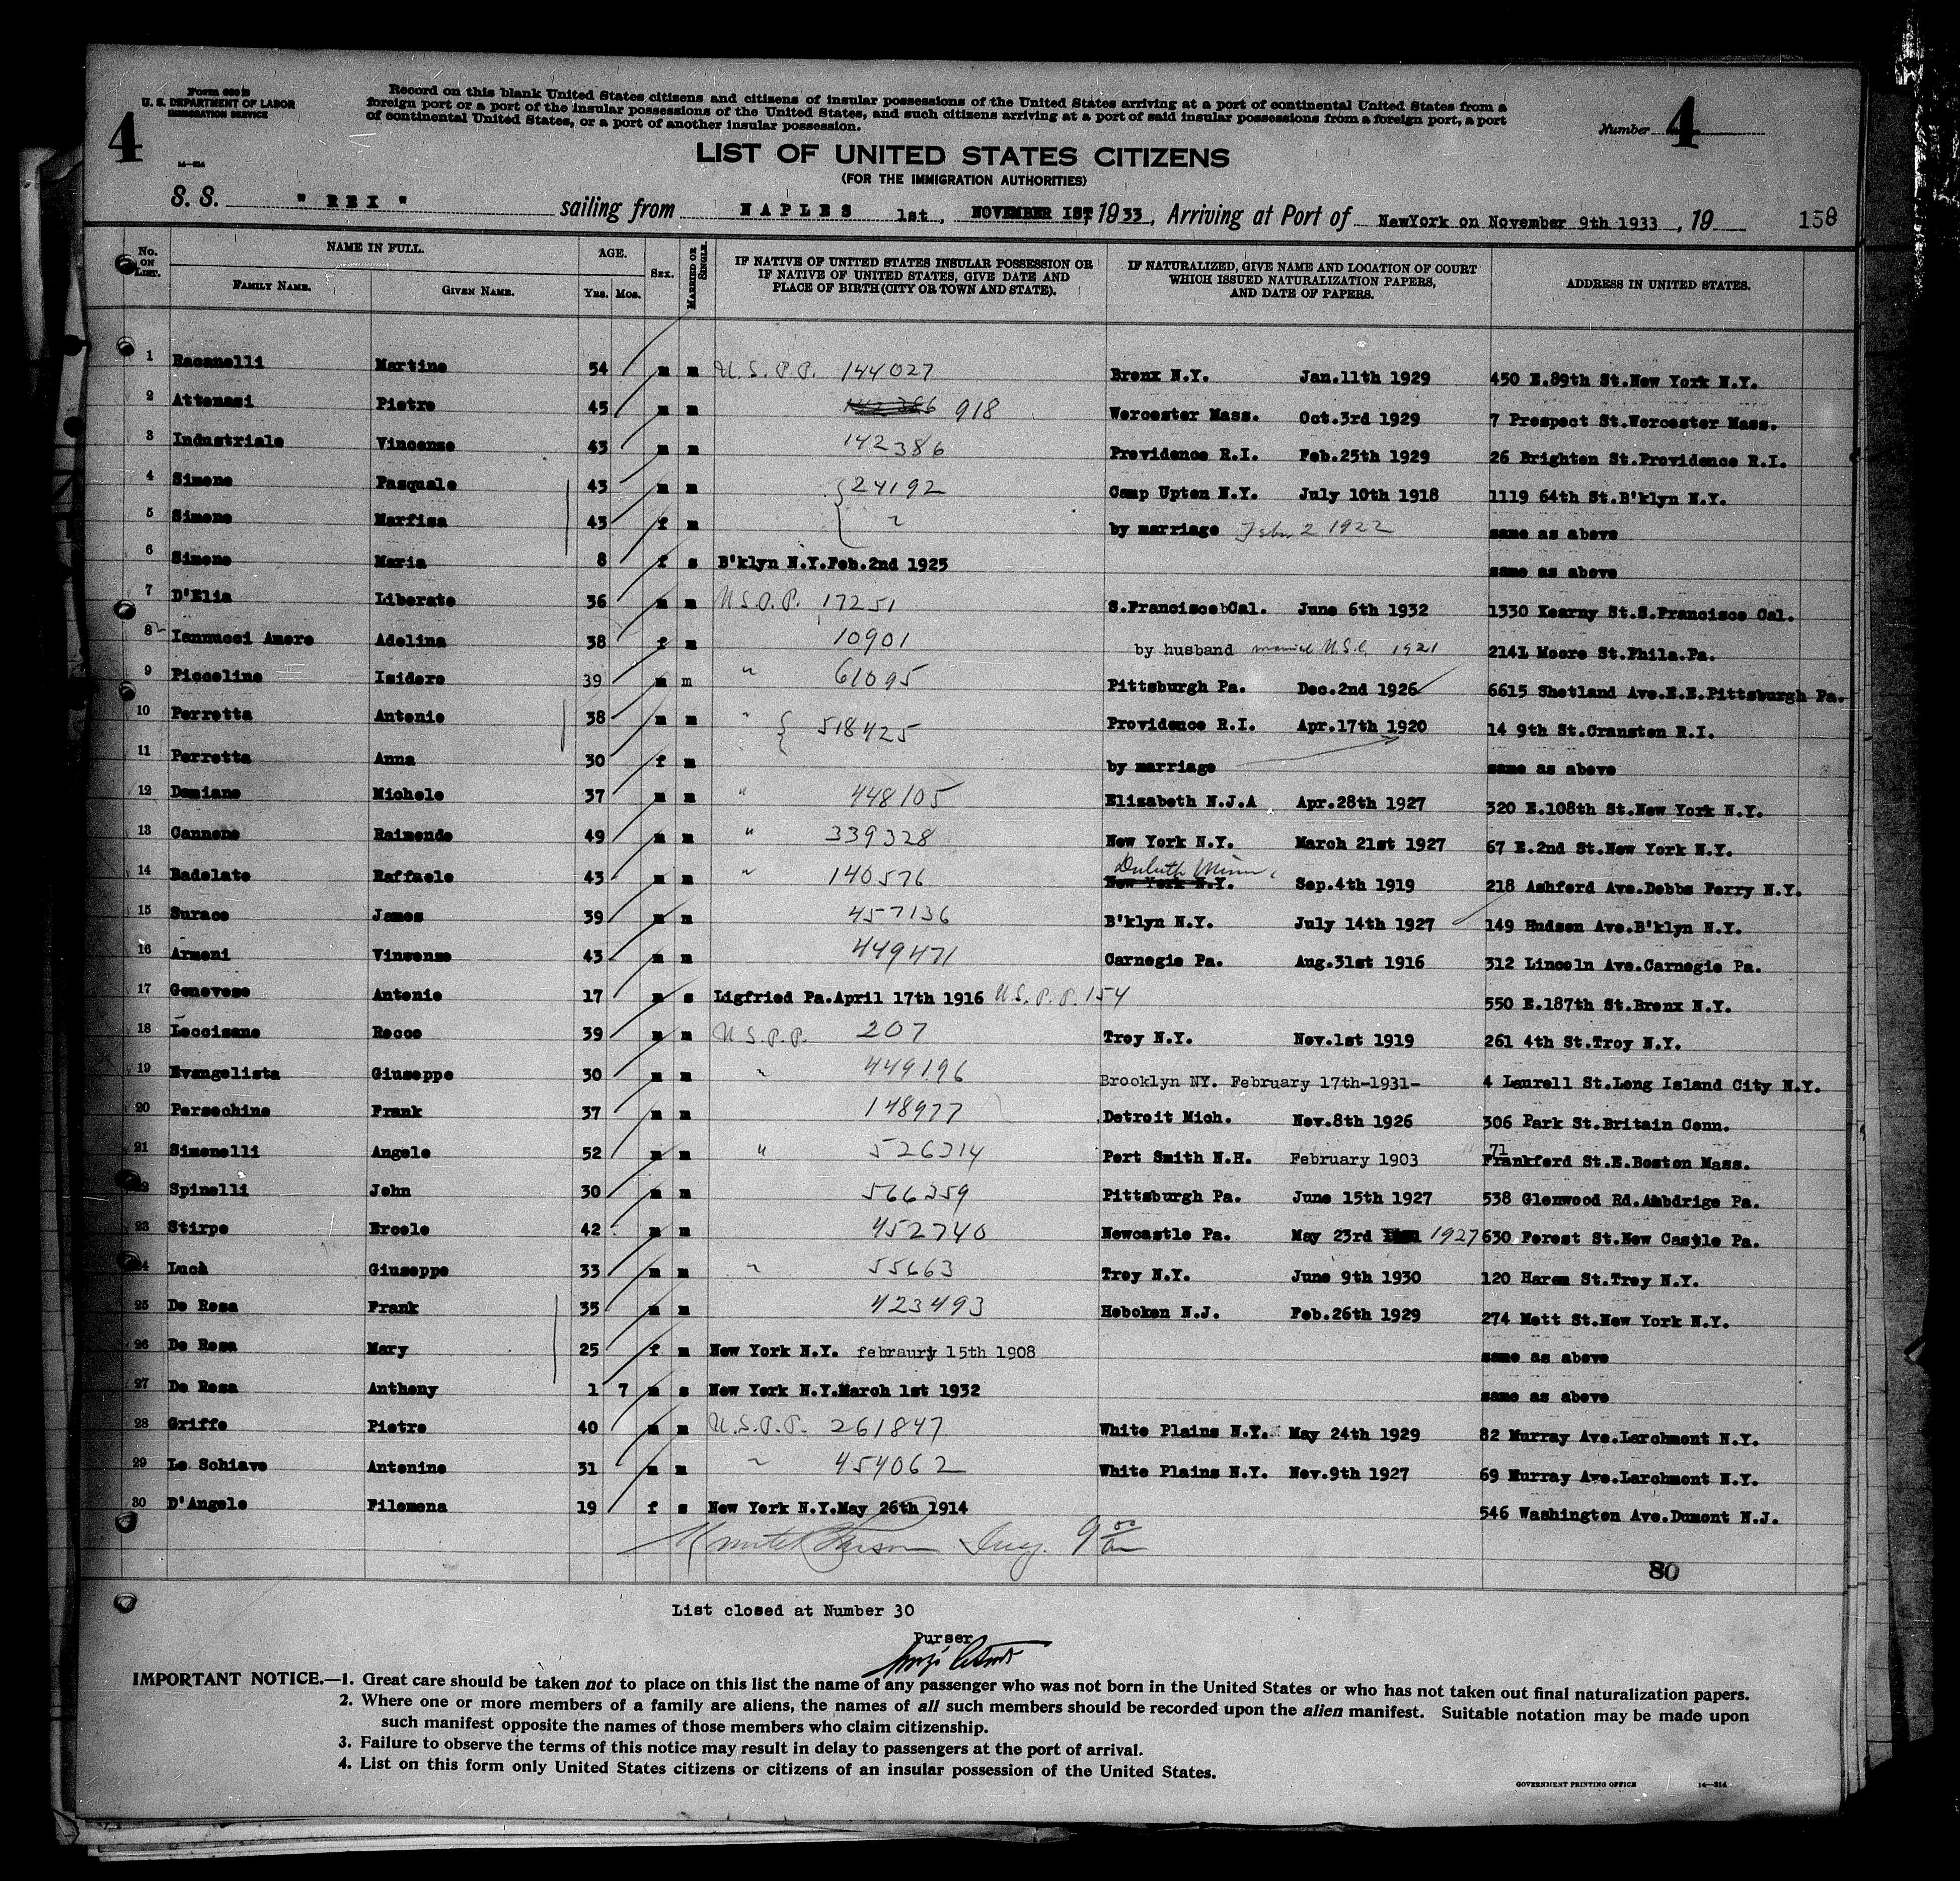 Form 630 B
U. S. DEPARTMENT OF LABOR
IMMIGRATION SERVICE
4
14—214
Record on this blank United States citizens and citizens of insular possessions of the United States arriving at a port of continental United States from a
foreign port or a port of the insular possessions of the United States, and such citizens arriving at a port of said insular possessions from a foreign port, a port
of continental United States, or a port of another insular possession.
Number 4
LIST OF UNITED STATES CITIZENS
(FOR THE IMMIGRATION AUTHORITIES)
S. S. " REX " sailing from NAPLES 1st, NOVEMBER IST, 1933, Arriving at Port of NewYork on November 9th 1933, 19 158
No. ON LIST. NAME IN FULL. FAMILY NAME. GIVEN NAME. AGE. YRS. MOS. SEX. MARRIED OR SINGLE. IF NATIVE OF UNITED STATES INSULAR POSSESSION OR IF NATIVE OF UNITED STATES, GIVE DATE AND PLACE OF BIRTH (CITY OR TOWN AND STATE). IF NATURALIZED, GIVE NAME AND LOCATION OF COURT WHICH ISSUED NATURALIZATION PAPERS, AND DATE OF PAPERS. ADDRESS IN UNITED STATES.
1 Racanelli Martino 54 m m U.S.P.P. 144027 Bronx N.Y. Jan.11th 1929 450 E.89th St.New York N.Y.
2 Attenasi Pietro 45 m m 918 Worcester Mass. Oct.3rd 1929 7 Prospect St.Worcester Mass.
3 Industriale Vincenzo 43 m m 142386 Providence R.I. Feb.25th 1929 26 Brighton St.Providence R.I.
4 Simone Pasquale 43 m m 24192 Camp Upton N.Y. July 10th 1918 1119 64th St.B'klyn N.Y.
5 Simone Marfisa 43 f m " by marriage Febr 2 1922 same as above
6 Simone Maria 8 f s B'klyn N.Y.Feb.2nd 1925 same as above
7 D'Elia Liberato 36 m m U.S.P.P. 17251 S.Francisco Cal. June 6th 1932 1330 Kearny St.S.Francisco Cal.
8 Iannucci Amore Adelina 38 f m 10901 by husband married U.S.C. 1921 2141 Moore St.Phila.Pa.
9 Piccolino Isidoro 39 m m " 61095 Pittsburgh Pa. Dec.2nd 1926 6615 Shetland Ave.E.E.Pittsburgh Pa.
10 Perretta Antonio 38 m m " 518425 Providence R.I. Apr.17th 1920 14 9th St.Cranston R.I.
11 Perretta Anna 30 f m by marriage same as above
12 Damiano Michele 37 m m " 448105 Elizabeth N.J.A Apr.28th 1927 320 E.108th St.New York N.Y.
13 Cannone Raimondo 49 m m " 339328 New York N.Y. March 21st 1927 67 E.2nd St.New York N.Y.
14 Badolato Raffaele 43 m m " 140576 Duluth Minn. New York N.Y. Sep.4th 1919 218 Ashford Ave.Dobbs Ferry N.Y.
15 Surace James 39 m m 457136 B'klyn N.Y. July 14th 1927 149 Hudson Ave.B'klyn N.Y.
16 Armeni Vinsenzo 43 m m 449471 Carnegie Pa. Aug.31st 1916 312 Lincoln Ave.Carnegie Pa.
17 Genovese Antonio 17 m s Ligfried Pa.April 17th 1916 U.S.P.P. 154 550 E.187th St.Bronx N.Y.
18 Leccisano Rocco 39 m m U.S.P.P. 207 Troy N.Y. Nov.1st 1919 261 4th St.Troy N.Y.
19 Evangelista Giuseppe 30 m m " 449196 Brooklyn NY. February 17th-1931- 4 Laurell St.Long Island City N.Y.
20 Persechino Frank 37 m m 148977 Detroit Mich. Nov.8th 1926 306 Park St.Britain Conn.
21 Simonelli Angelo 52 m m " 526314 Port Smith N.H. February 1903 71 Frankford St.E.Boston Mass.
22 Spinelli John 30 m m 566359 Pittsburgh Pa. June 15th 1927 538 Glenwood Rd.Ambdrige Pa.
23 Stirpe Ercole 42 m m 452740 Newcastle Pa. May 23rd 1927 630 Forest St.New Castle Pa.
24 Lucà Giuseppe 33 m m " 55663 Troy N.Y. June 9th 1930 120 Haram St.Troy N.Y.
25 De Rosa Frank 35 m m 423493 Hoboken N.J. Feb.26th 1929 274 Mott St.New York N.Y.
26 De Rosa Mary 25 f m New York N.Y. febraury 15th 1908 same as above
27 De Rosa Anthony 1 7 m s New York N.Y.March 1st 1932 same as above
28 Griffo Pietro 40 m m U.S.P.P. 261847 White Plains N.Y. May 24th 1929 82 Murray Ave.Larchmont N.Y.
29 Lo Schiavo Antonino 31 m m " 454062 White Plains N.Y. Nov.9th 1927 69 Murray Ave.Larchmont N.Y.
30 D'Angelo Filomena 19 f s New York N.Y.May 26th 1914 546 Washington Ave.Dumont N.J.
Insp. 9 00
80
List closed at Number 30
Purser
IMPORTANT NOTICE.—1. Great care should be taken not to place on this list the name of any passenger who was not born in the United States or who has not taken out final naturalization papers.
2. Where one or more members of a family are aliens, the names of all such members should be recorded upon the alien manifest. Suitable notation may be made upon
such manifest opposite the names of those members who claim citizenship.
3. Failure to observe the terms of this notice may result in delay to passengers at the port of arrival.
4. List on this form only United States citizens or citizens of an insular possession of the United States.
GOVERNMENT PRINTING OFFICE 14—214